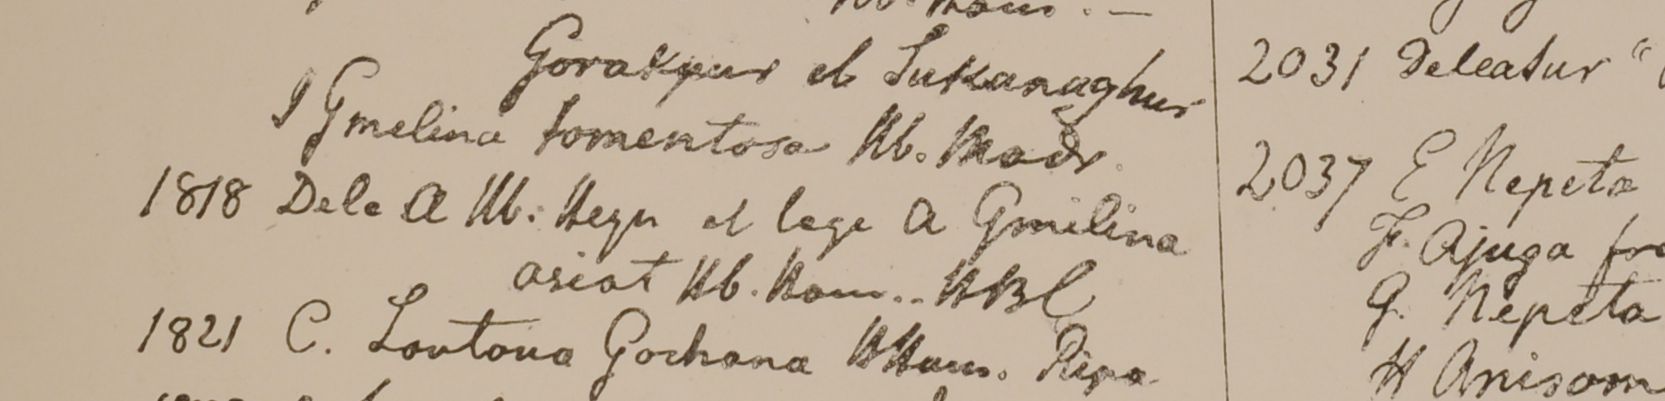 Gorakpur et Sukanaghur
I Gmelina tomentosa Hb. Madr.
1818 Dele A Hb. Heyn et lege A Gmilina
asiat Hb. Ham.. HBC
1821 C. Lantana Gochana HHam. Ripa
2031 Deleatur "
2037 E Nepeta
F. Ajuga
G. Nepeta
H